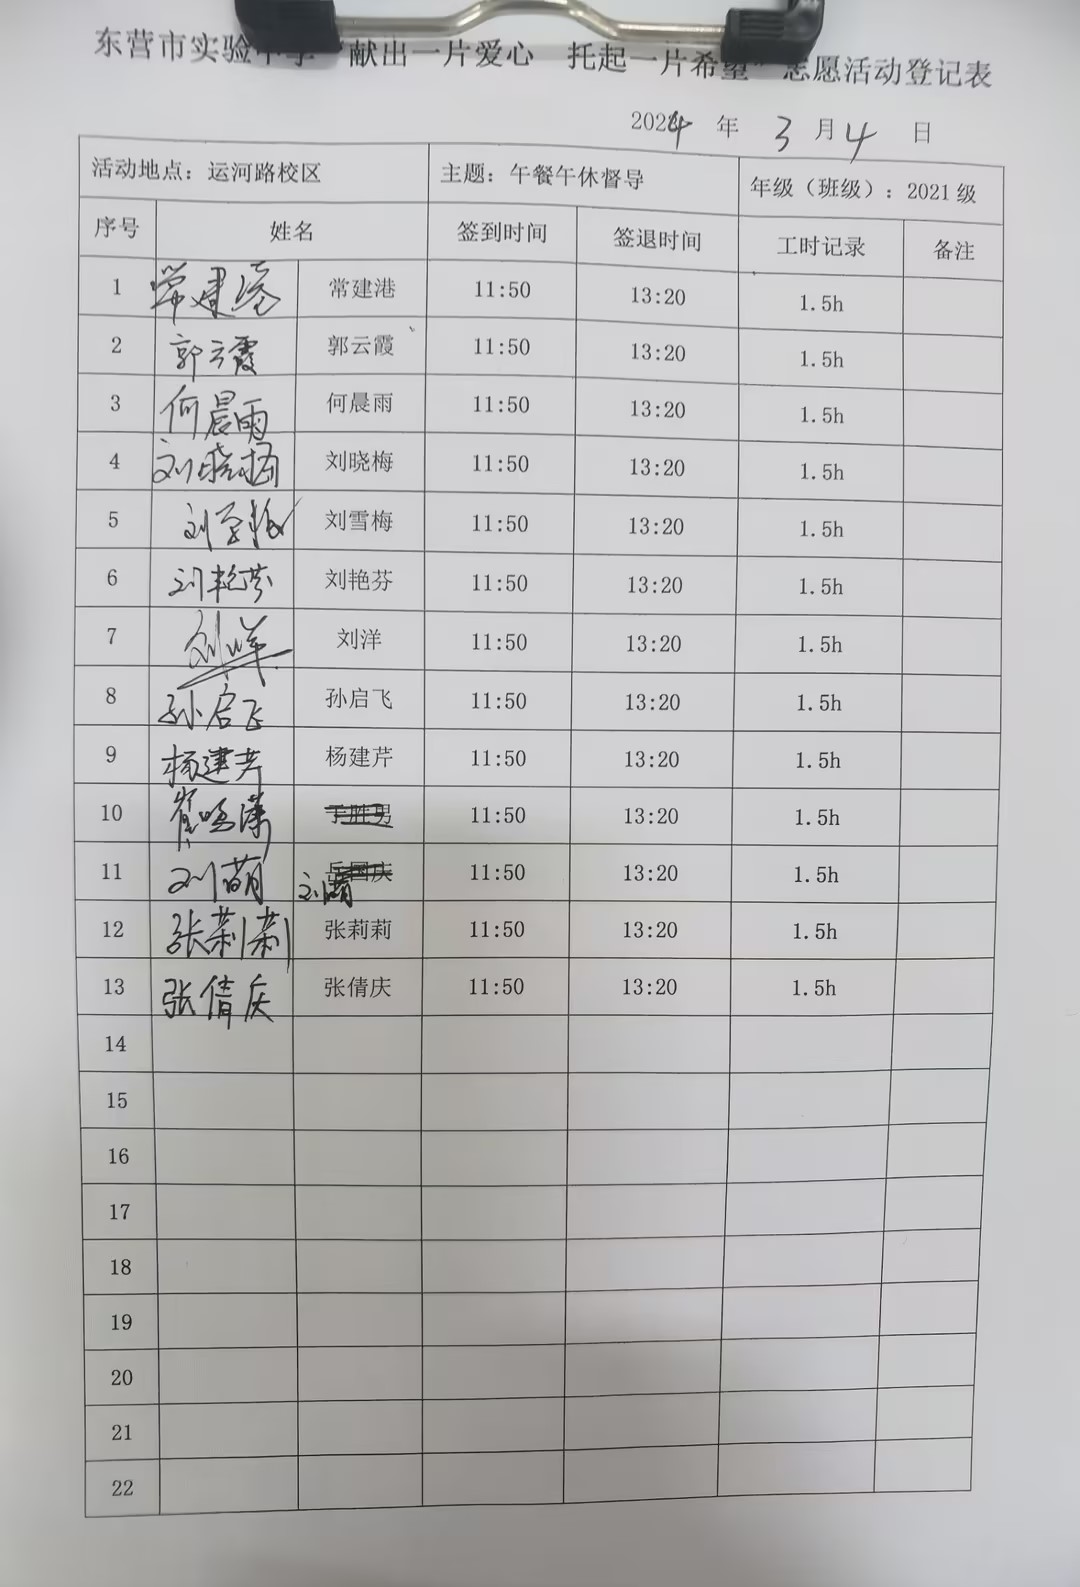 东营市实验中学“献出一片爱心 托起一片希望”志愿活动登记表
2024 年 3 月 4 日
活动地点：运河路校区 主题：午餐午休督导 年级（班级）：2021 级
序号 姓名 签到时间 签退时间 工时记录 备注
1 常建港 常建港 11:50 13:20 1.5h
2 郭云霞 郭云霞 11:50 13:20 1.5h
3 何晨雨 何晨雨 11:50 13:20 1.5h
4 刘晓梅 刘晓梅 11:50 13:20 1.5h
5 刘雪梅 刘雪梅 11:50 13:20 1.5h
6 刘艳芬 刘艳芬 11:50 13:20 1.5h
7 刘洋 刘洋 11:50 13:20 1.5h
8 孙启飞 孙启飞 11:50 13:20 1.5h
9 杨建芹 杨建芹 11:50 13:20 1.5h
10 于胜男 11:50 13:20 1.5h
11 刘萌 岳国庆 刘萌 11:50 13:20 1.5h
12 张莉莉 张莉莉 11:50 13:20 1.5h
13 张倩庆 张倩庆 11:50 13:20 1.5h
14
15
16
17
18
19
20
21
22